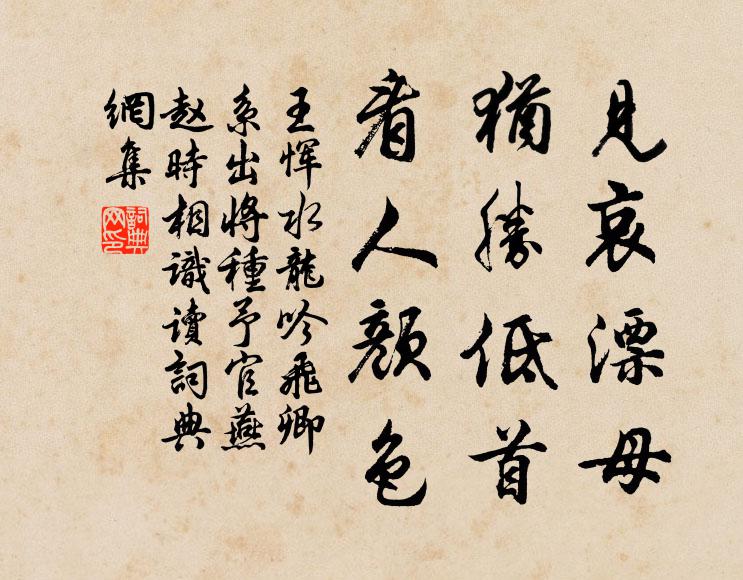 見哀漂母
猶勝低首
看人顔色
王惲水龍吟飛卿
系出將種予官燕
赵時相識讀詞典
網集
詞典網印